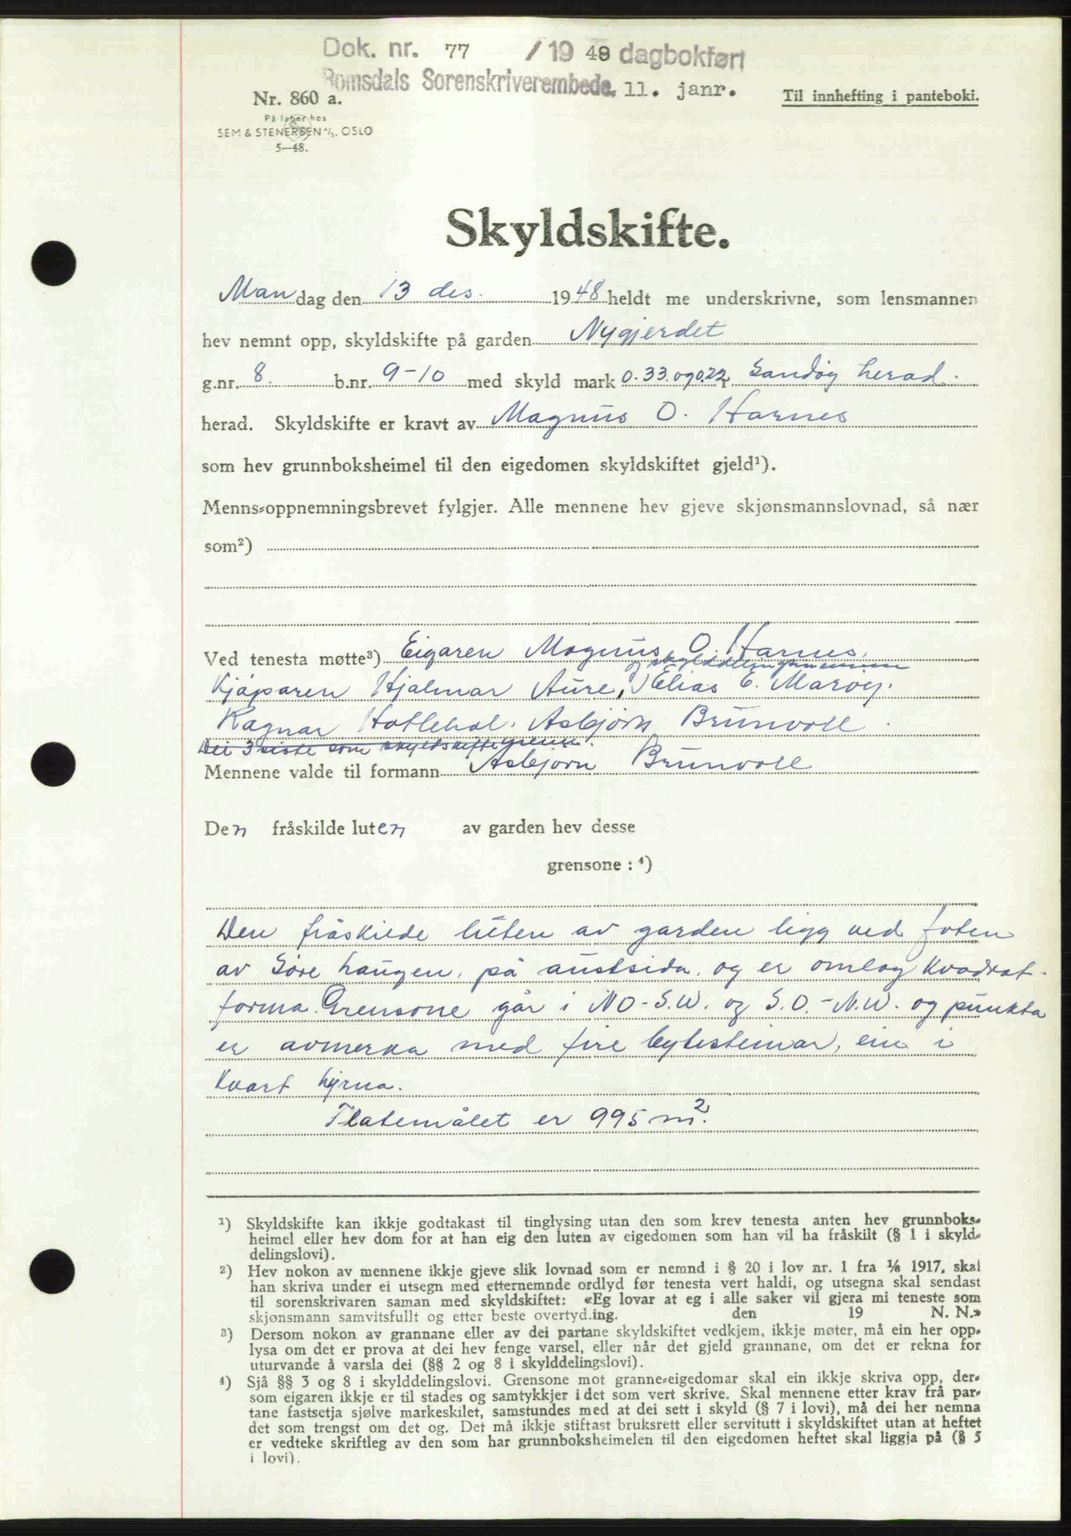 Dok. nr. 77 /19 49 dagbokført
Romsdals Sorenskriverembede, 11. janr.
Nr. 860 a.
Til innhefting i panteboki.
På lager hos
SEM & STENERSEN A/S, OSLO
5—48.
Skyldskifte.
Mandag den 13 des. 1948 heldt me underskrivne, som lensmannen
hev nemnt opp, skyldskifte på garden Nygjerdet
g.nr. 8. b.nr. 9-10 med skyld mark 0.33 og 0.22 i Sandøy herad.
herad. Skyldskifte er kravt av Magnus O. Harnes
som hev grunnboksheimel til den eigedomen skyldskiftet gjeld¹).
Menns-oppnemningsbrevet fylgjer. Alle mennene hev gjeve skjønsmannslovnad, så nær
som²)
Ved tenesta møtte³) Eigaren Magnus O. Harnes.
og skylddelingsmennene
Kjøparen Hjalmar Aure, Elias E. Marøy.
Ragnar Hatlehol. Asbjørn Brunvoll.
Dei 3 siste som skyldskiftemenn.
Mennene valde til formann Asbjørn Brunvoll
Den fråskilde luten av garden hev desse
grensone : ⁴)
Den fråskilde luten av garden ligg ved foten
av Søre haugen, på austsida, og er omlag kvadrat-
forma. Grensone går i NO-S.W. og S.O.-N.W. og punkta
er avmerka med fire bytesteinar, ein i
kvart hyrna.
Flatemålet er 995 m².
¹) Skyldskifte kan ikkje godtakast til tinglysing utan den som krev tenesta anten hev grunnboks-
heimel eller hev dom for at han eig den luten av eigedomen som han vil ha fråskilt (§ 1 i skyld-
delingslovi).
²) Hev nokon av mennene ikkje gjeve slik lovnad som er nemnd i § 20 i lov nr. 1 fra 1/6 1917, skal
han skriva under ei utsegn med etternemnde ordlyd før tenesta vert haldi, og utsegna skal sendast
til sorenskrivaren saman med skyldskiftet: «Eg lovar at eg i alle saker vil gjera mi teneste som
skjønsmann samvitsfullt og etter beste overtyding. den 19 N. N.»
³) Dersom nokon av grannane eller av dei partane skyldskiftet vedkjem, ikkje møter, må ein her opp-
lysa om det er prova at dei hev fenge varsel, eller når det gjeld grannane, om det er rekna for
uturvande å varsla dei (§§ 2 og 8 i skylddelingslovi).
⁴) Sjå §§ 3 og 8 i skylddelingslovi. Grensone mot granne-eigedomar skal ein ikkje skriva opp, der-
som eigaren ikkje er til stades og samtykkjer i det som vert skrive. Skal mennene etter krav frå par-
tane fastsetja sjølve markeskilet, samstundes med at dei sett i skyld (§ 7 i lovi), må dei her nemna
det som trengst om det og. Det må ikkje stiftast bruksrett eller servitutt i skyldskiftet utan at heftet
er vedteke skriftleg av den som har grunnboksheimelen til den eigedomen heftet skal liggja på (§ 5
i lovi).